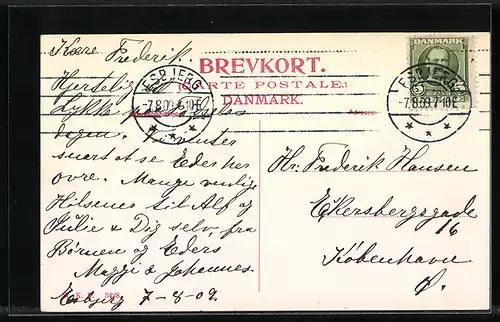 Kære Frederik.
Hjertelig
Lykke
dagen. Vi venter
snart at se Eder her
ovre. Mange venlige
Hilsener til Alf og
Julie & Dig selv, fra
Børnen og Eders
Maggi & Johannes
Esbjerg 7-8-09.
BREVKORT.
(CARTE POSTALE)
DANMARK.
ESBJERG
-7.8.09.
DANMARK
ESBJERG
-7.8.09.
Hr. Frederik Hansen
Eckersbergsgade
16
København
Ø.